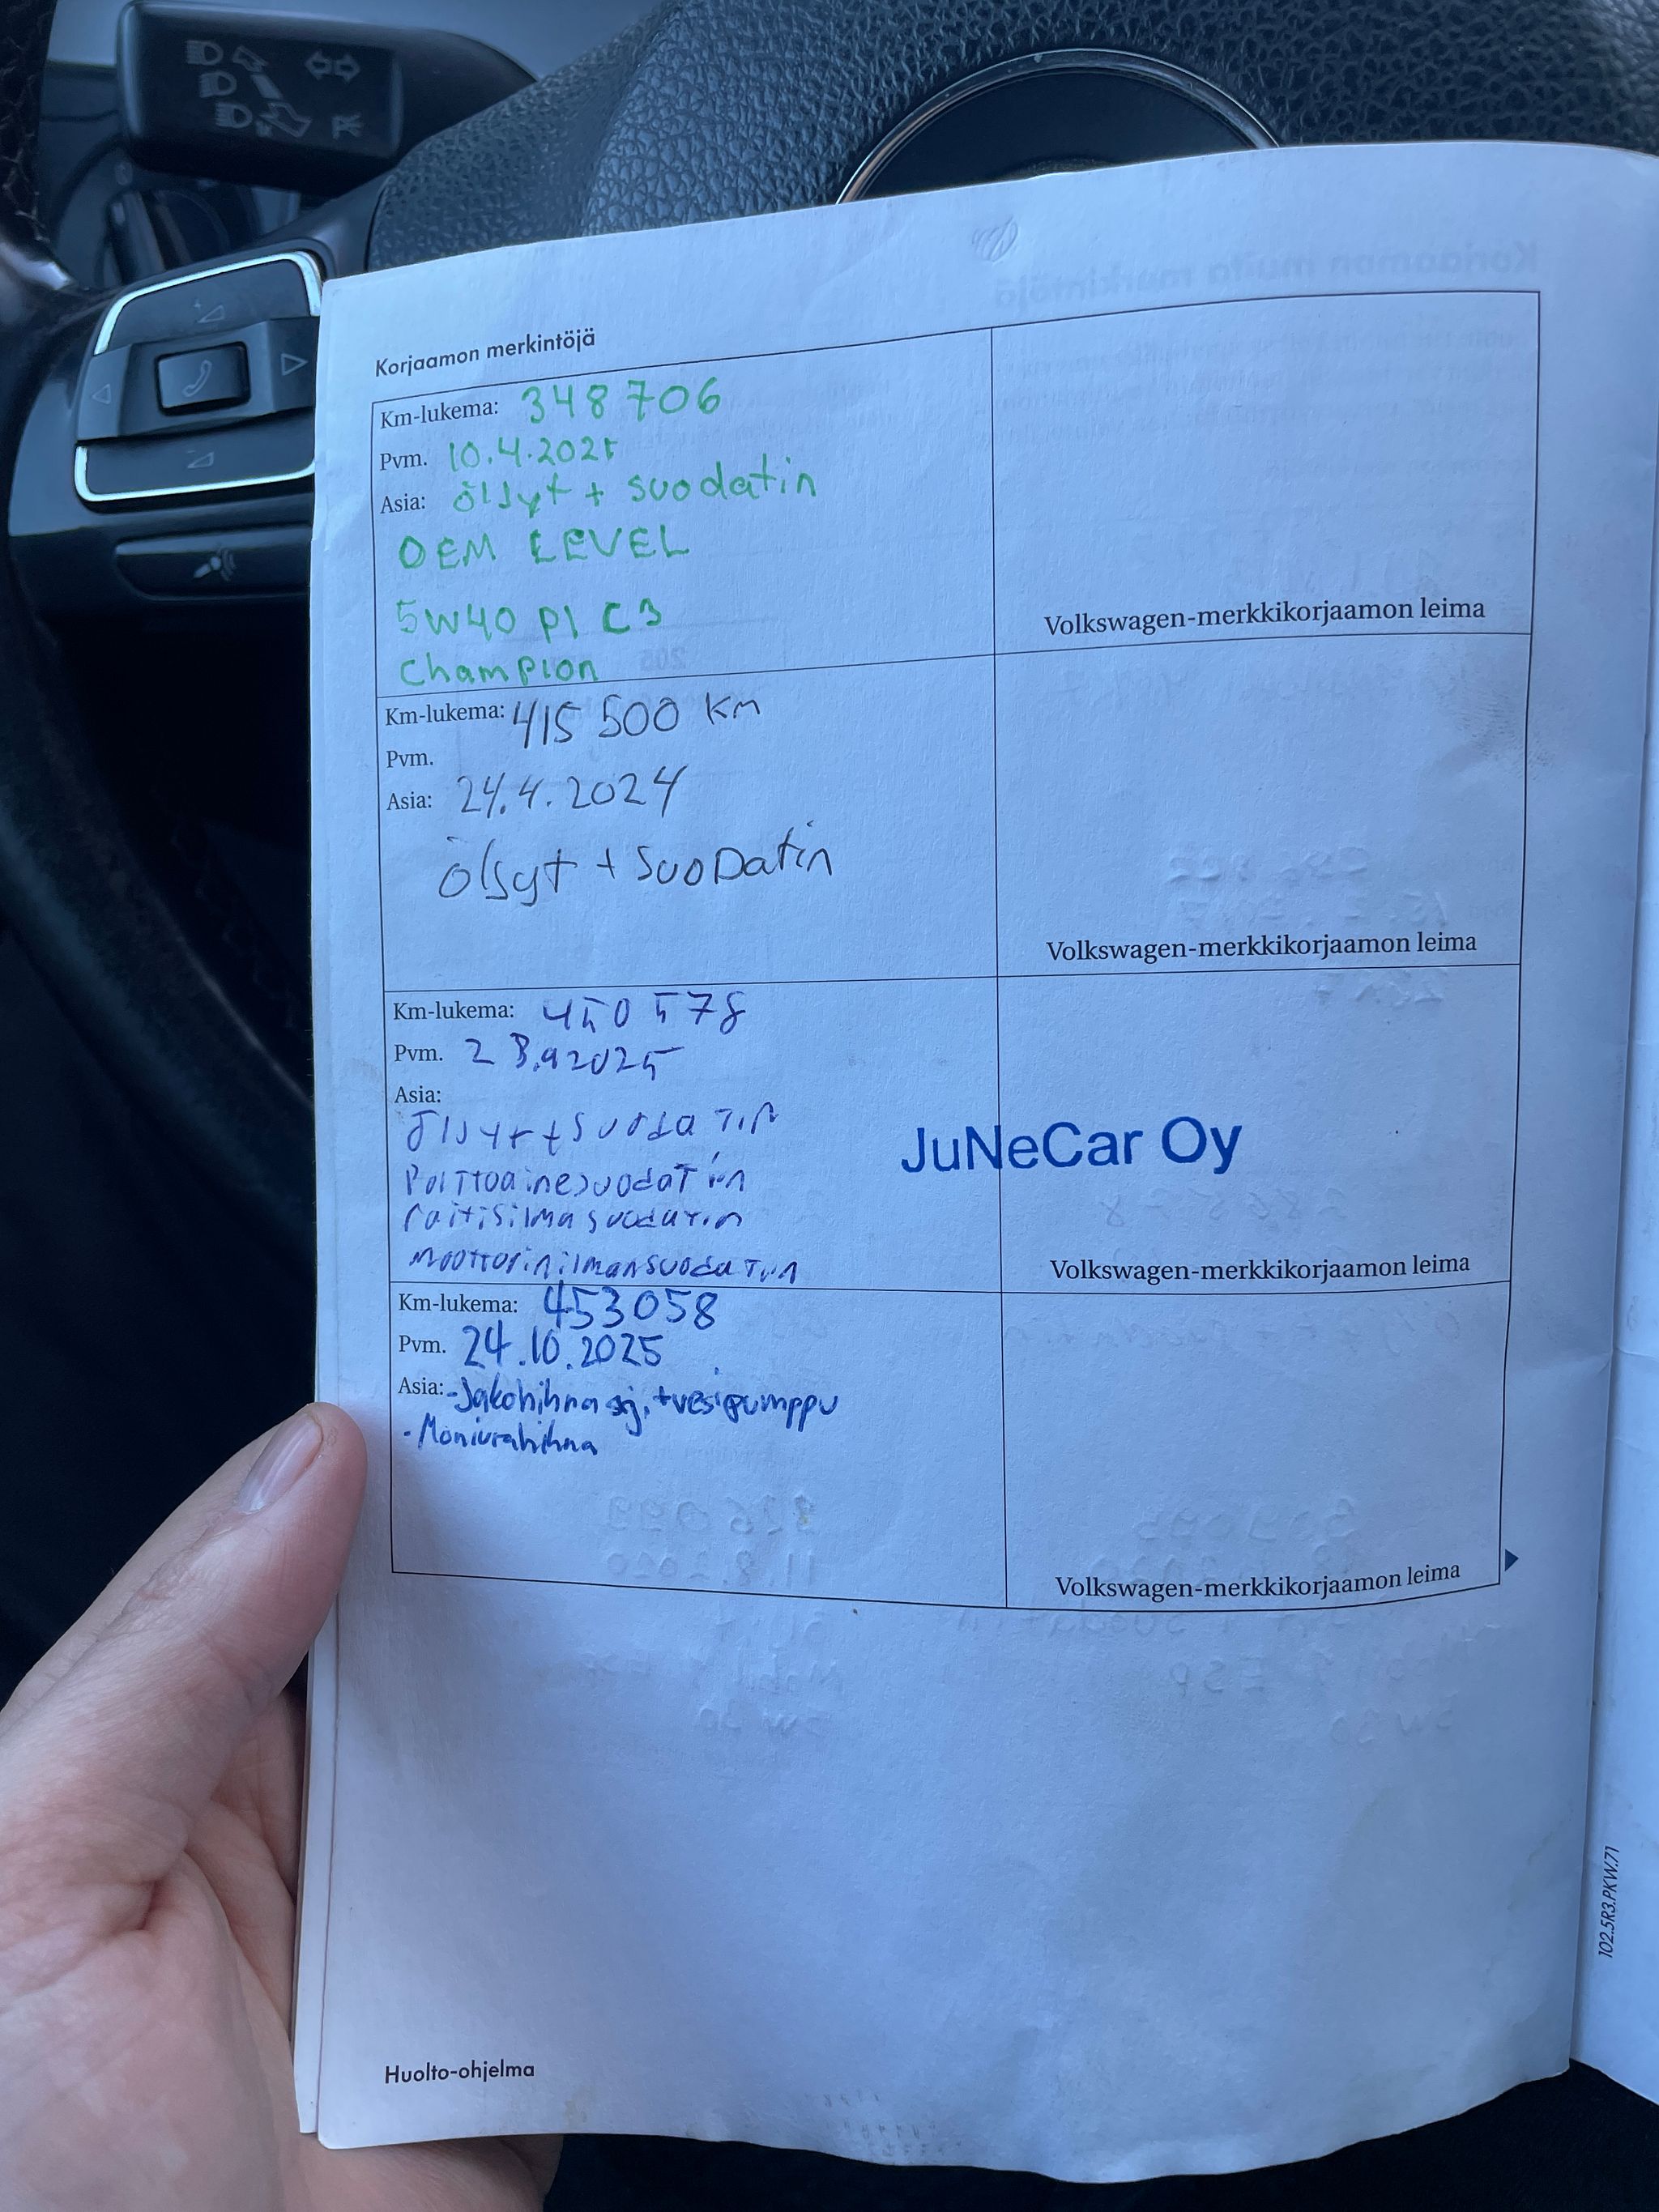 Korjaamon merkintöjä
Km-lukema: 348706
Pvm. 10.4.2025
Asia: öljyt + suodatin
OEM LEVEL
5W40 PI C3
Champion
Volkswagen-merkkikorjaamon leima
Km-lukema: 415 500 km
Pvm.
Asia: 24.4.2024
Öljyt + suoDatin
Volkswagen-merkkikorjaamon leima
Km-lukema: 450 578
Pvm. 23.92025
Asia:
Öljyt + suodatin
Polttoainesuodatin
raitisilmasuodatin
moottorinilmansuodatin
JuNeCar Oy
Volkswagen-merkkikorjaamon leima
Km-lukema: 453058
Pvm. 24.10.2025
Asia: -Jakohihna sj. +vesipumppu
-Moniurahihna
Volkswagen-merkkikorjaamon leima
Huolto-ohjelma
102.5R3.PKW.71